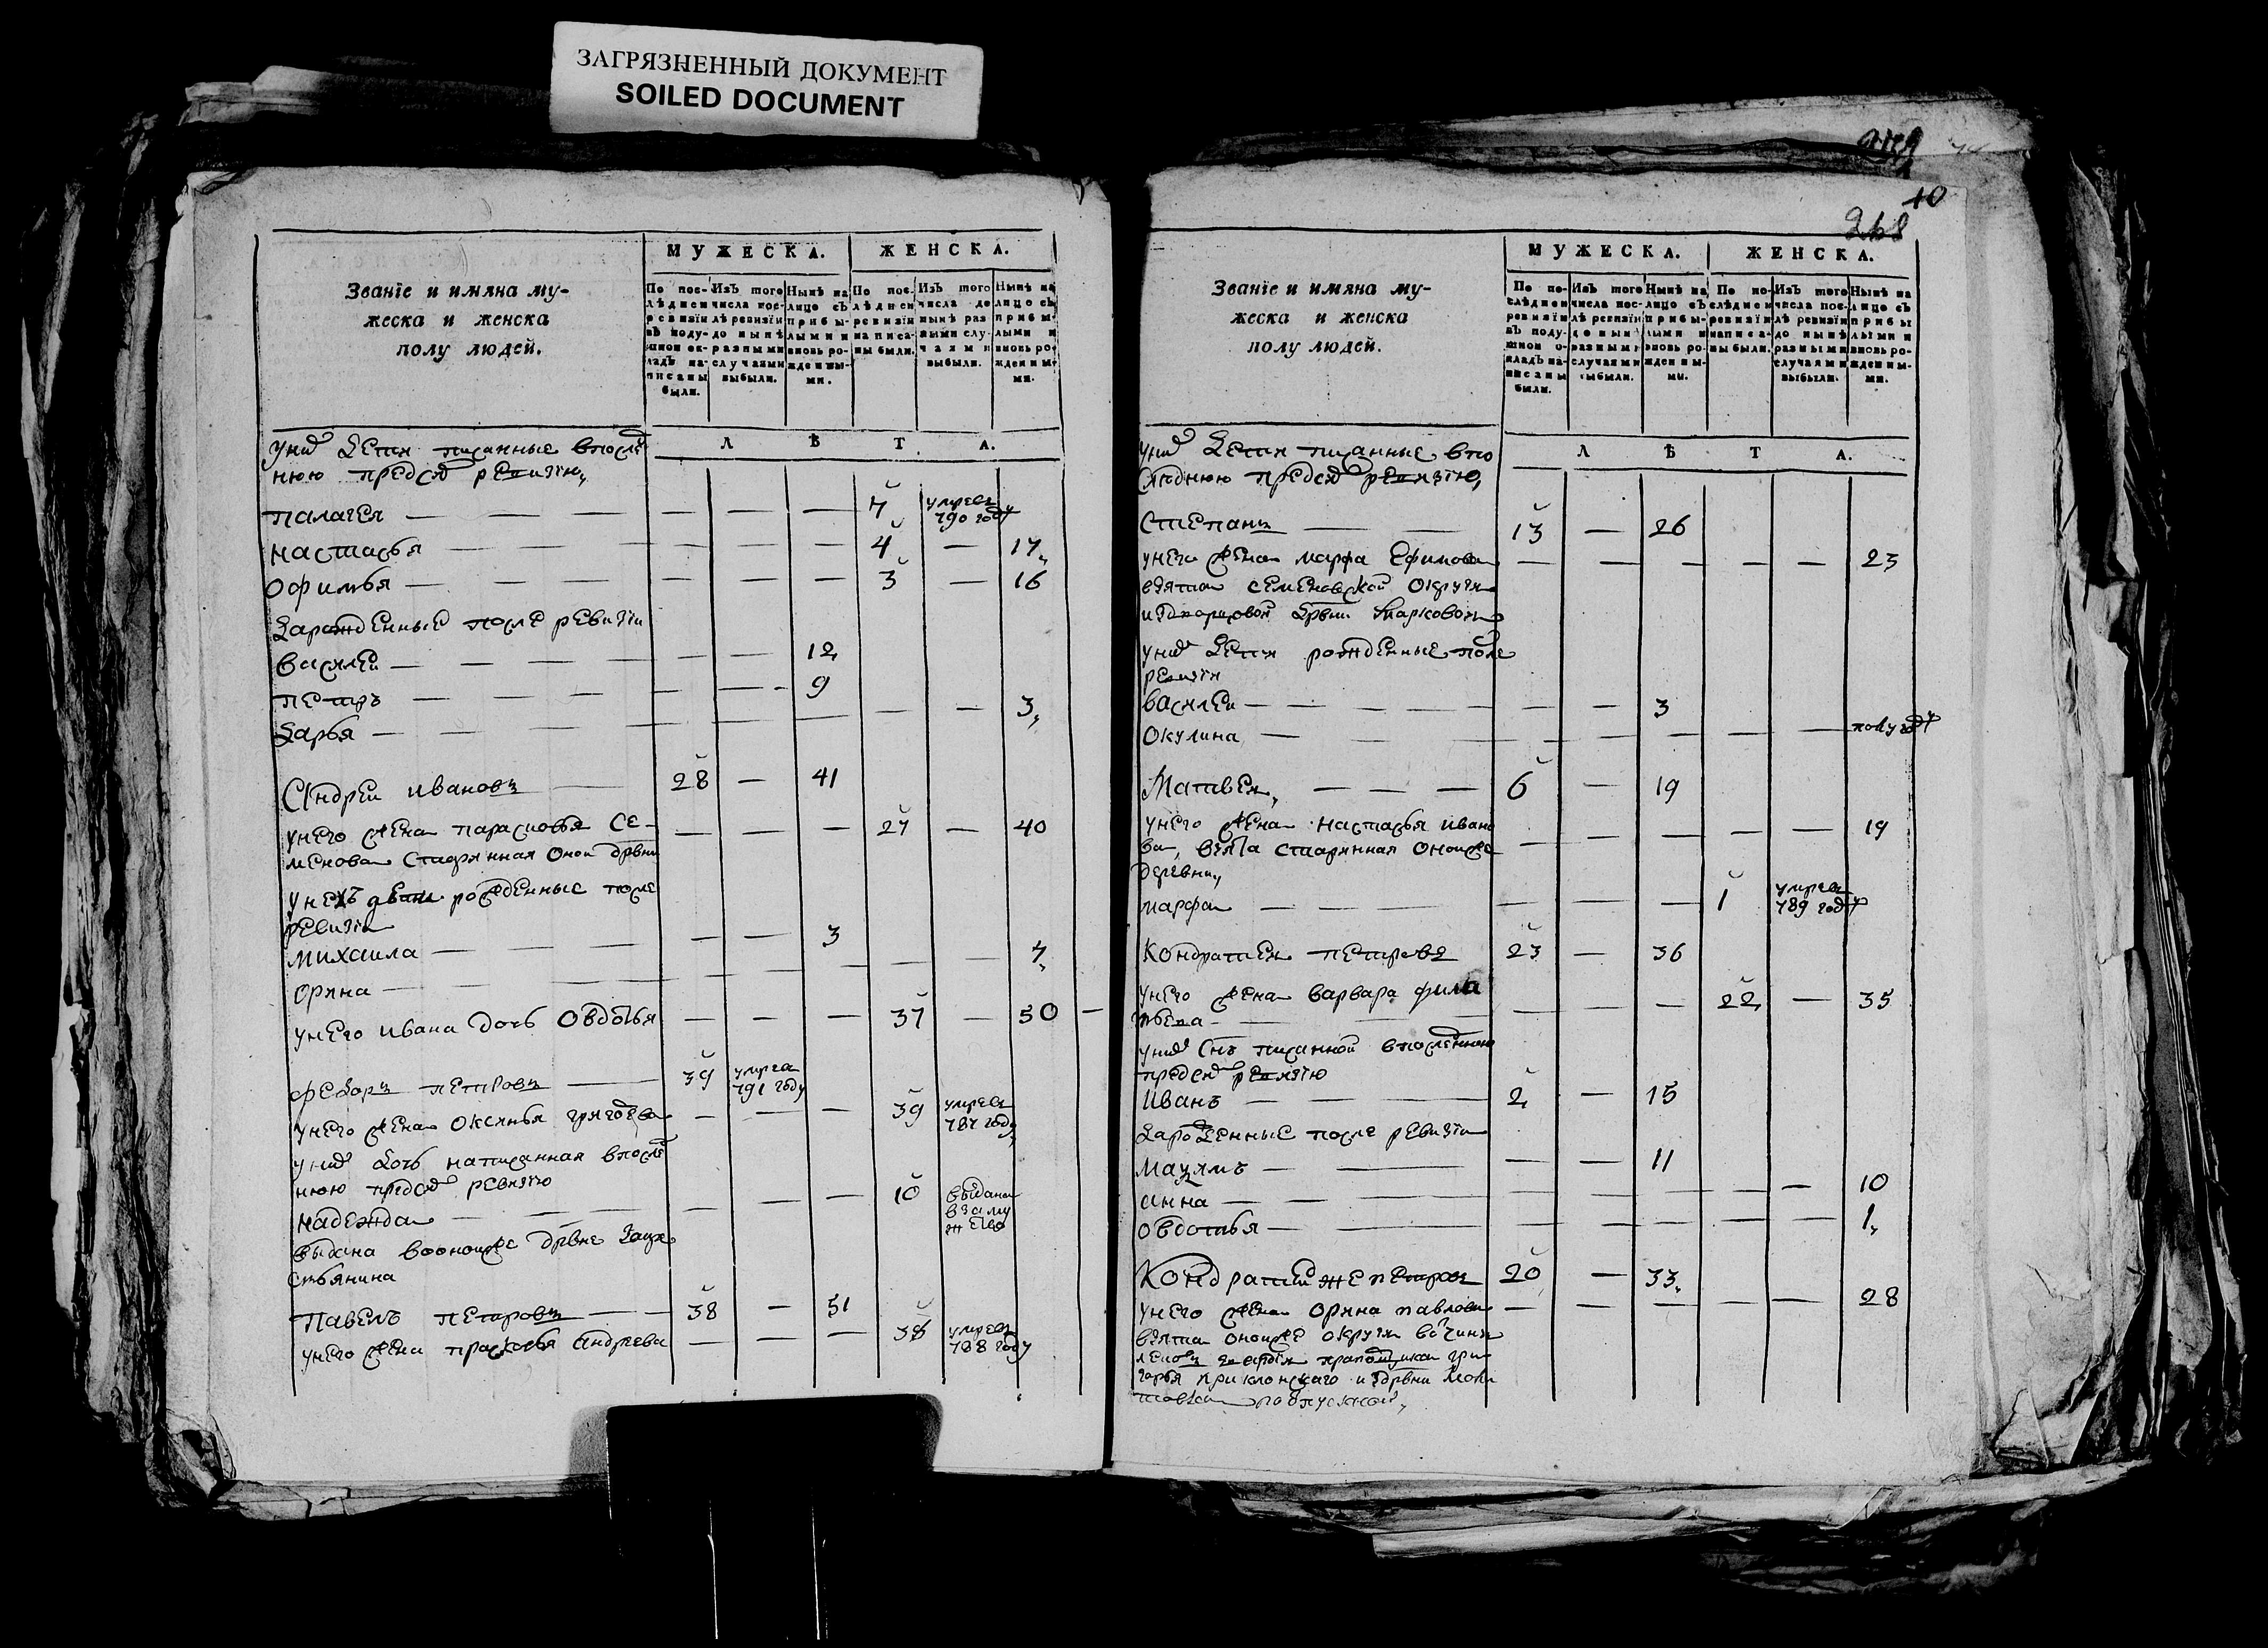 ЗАГРЯЗНЕННЫЙ ДОКУМЕНТ
SOILED DOCUMENT
Званїе и имяна му-
жеска и женска
полу людей.
МУЖЕСКА. ЖЕНСКА.
По пос-
лѣдней
ревизїи
въ поду-
шной ок-
ладъ на-
писаны
были.
Изъ того
числа пос-
лѣ ревизїи
до нынѣ
разными
случаями
выбыли.
Нынѣ на
лицо съ
прибы-
лыми и
вновь ро-
жденны-
ми.
По пос-
лѣдней
ревизїи
написа-
ны были.
Изъ того
числа до
нынѣ раз
ными слу-
чаями
выбыли.
Нынѣ на
лицо съ
прибы-
лыми и
вновь ро-
жденны-
ми.
ЛѢТА.
у них дети писанные впослѣд
нюю пред сей ревизїю
палагея — 7 умерла 790 году
настасья — 4 — 17
офимья — 3 — 16
зарожденные после ревизїи
василей — 12
петръ — 9
дарья — 3
Андреи ивановъ — 28 — 41
у него жена парасковья се-
менова старинная оной дрвни — 27 — 40
у нехъ дети рожденные после
ревизїи
михаила — 3
орина — 7
у него ивана дочь овдотья — 37 — 50
федоръ петровъ — 39 умре 791 году
у него жена оксинья григорева — 39 умрела 787 году
у них дочь написанная впослѣд
нюю пред сей ревизїю
надежда — 10 выдана взаму жество
выдана воной же дрвне за кре
стьянина
павелъ петровъ — 38 — 51
у него жена прасковья андреева — 38 умрела 788 году
10
268
Званїе и имяна му-
жеска и женска
полу людей.
МУЖЕСКА. ЖЕНСКА.
По по-
слѣдней
ревизїи
въ поду-
шной о-
кладъ на-
писаны
были.
Изъ того
числа пос-
лѣ ревизїи
до нынѣ
разными
случаями
выбыли.
Нынѣ на
лицо съ
прибы-
лыми и
вновь ро-
жденны-
ми.
По по-
слѣдней
ревизїи
написа-
ны были.
Изъ того
числа пос-
лѣ ревизїи
до нынѣ
разными
случаями
выбыли.
Нынѣ на
лицо съ
прибы
лыми и
вновь ро-
жденны-
ми.
ЛѢТА.
у них дети писанные впо
следнюю пред сей ревизїю
степанъ — 13 — 26
у него жена марфа ефимова — 23
взята семеновской округи
дрвни
у них дети рожденные после
ревизїи
василеи — 3
окулина — полугоду
Матвей — 6 — 19
у него жена настасья ивано
ва, взята старинная оной же — 19
деревни
марфа — 1 умрела 789 году
кондратей петровъ — 23 — 36
у него жена варвара фила
тьева — 22 — 35
у них снъ писанной впоследнюю
пред сей ревизїю
иванъ — 2 — 15
зарожденные после ревизїи
— 11
анна — 10
овдотья — 1
Кондратий же петровъ — 20 — 33
у него жена орина павлова — 28
взята оной же округи вочины
прапощика гри
горья приклонскаго из дрвни